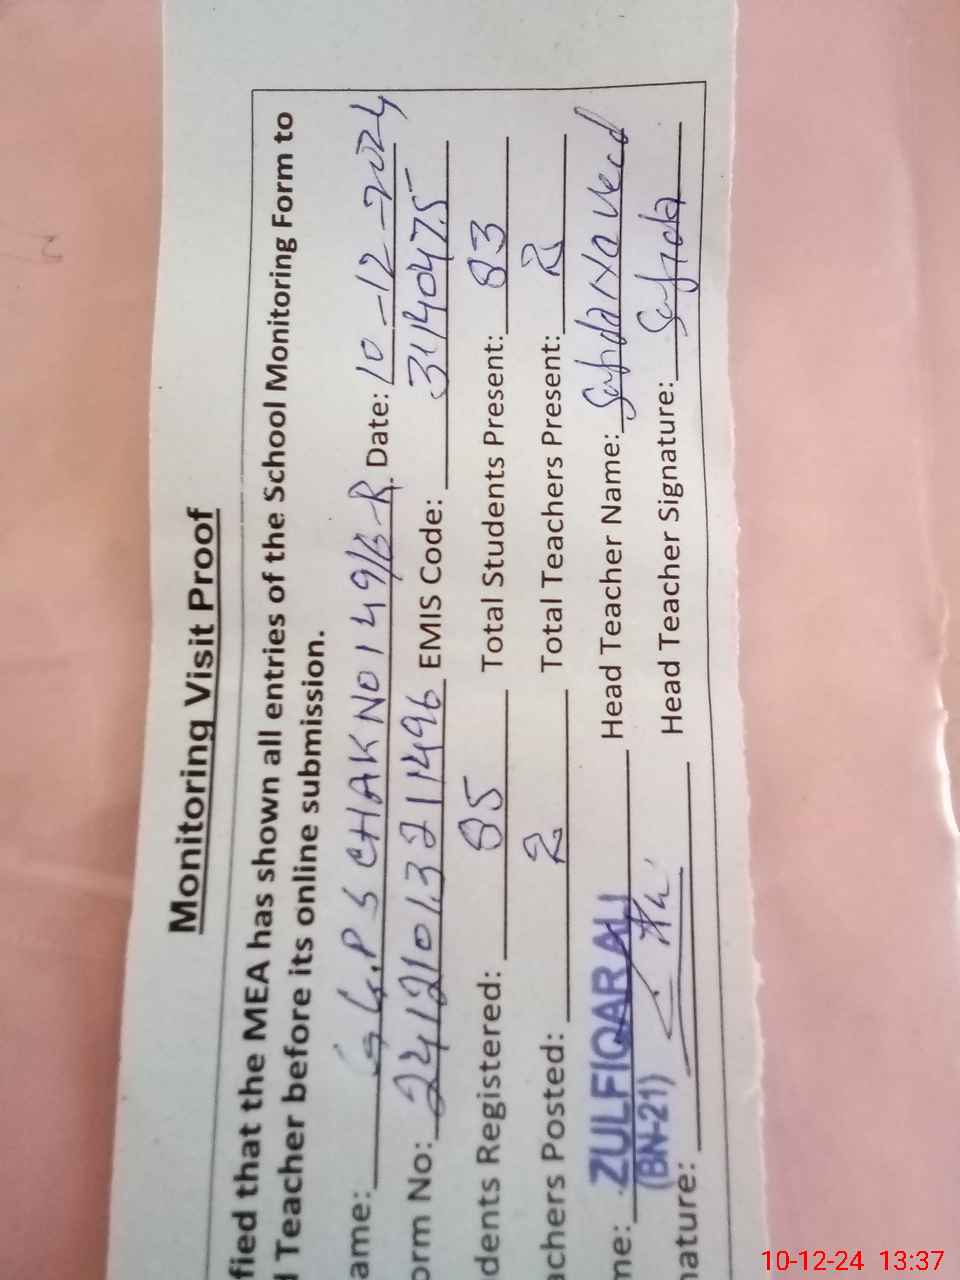 Monitoring Visit Proof
fied that the MEA has shown all entries of the School Monitoring Form to
Teacher before its online submission.
ame: G.P S CHAK NO 149/B-R Date: 10-12-2024
orm No: 24121013211496 EMIS Code: 31140475
dents Registered: 85 Total Students Present: 83
achers Posted: 2 Total Teachers Present: 2
me: ZULFIQAR ALI Head Teacher Name:
(BN-21)
nature: Head Teacher Signature:
10-12-24 13:37